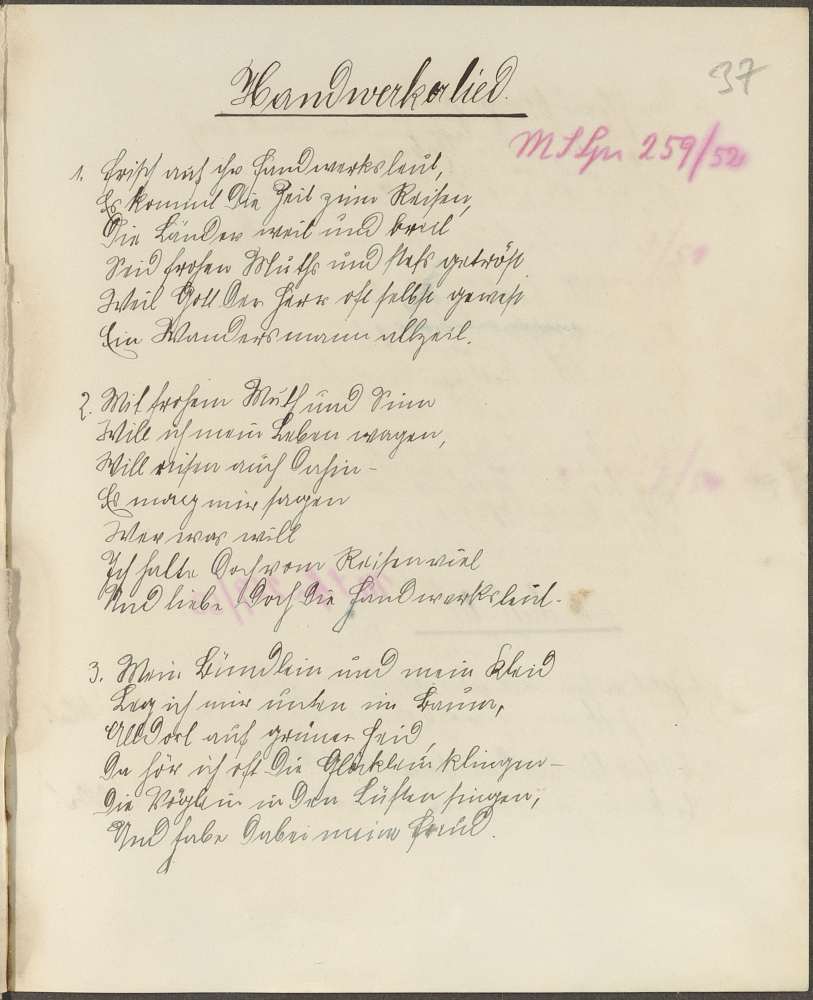 Handwerkerlied.
37
259/52
1. Frisch auf ihr Handwerksleut,
Es kommt die Zeit zum Reisen,
Die Länder weit und breit
Seid frohen Muths und stets getröst
Weil Gott der Herr oft selbst gewest
Ein Wandersmann allzeit.
2. Mit frohem Muth und Sinn
Will ich mein Leben wagen,
Will reisen auch dahin –
Es mag mir sagen
Wer was will
Ich halte doch vom Reisen viel
Und liebe doch die Handwerksleut –
3. Mein Bündlein und mein Kleid
Leg ich mir unten im Baum,
Alldort auf grüner Heid
Da hör ich oft die Glöcklein klingen –
Die Vöglein in den Lüften singen,
Und habe dabei meine Freud.